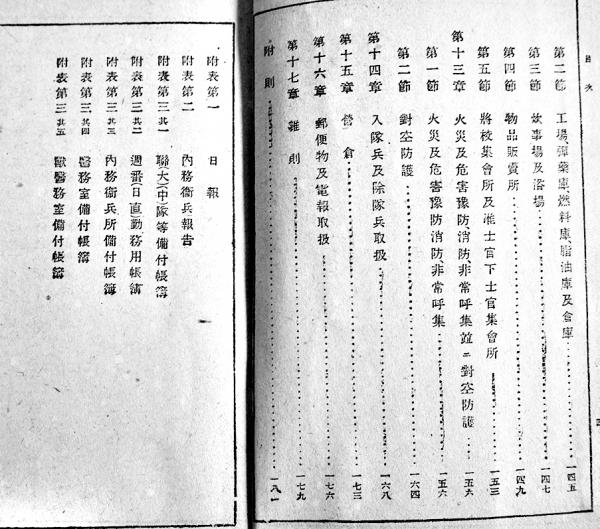 目次
第二節 工場、彈藥庫、燃料庫、脂油庫及倉庫 一四五
第三節 炊事場及浴場 一四七
第四節 物品販賣所 一四九
第五節 將校集會所及准士官下士官集會所 一五三
第十三章 火災及危害豫防、消防、非常呼集竝ニ對空防護 一五六
第一節 火災及危害豫防、消防、非常呼集 一五六
第二節 對空防護 一六四
第十四章 入隊兵及除隊兵取扱 一六八
第十五章 營倉 一七三
第十六章 郵便物及電報取扱 一七六
第十七章 雜則 一七九
附則 一八一
附表第一 日報
附表第二 內務衞兵報告
附表第三其一 聯(大)(中)隊等備付帳簿
附表第三其二 週番(日直)勤務用帳簿
附表第三其三 內務衞兵所備付帳簿
附表第三其四 醫務室備付帳簿
附表第三其五 獸醫務室備付帳簿